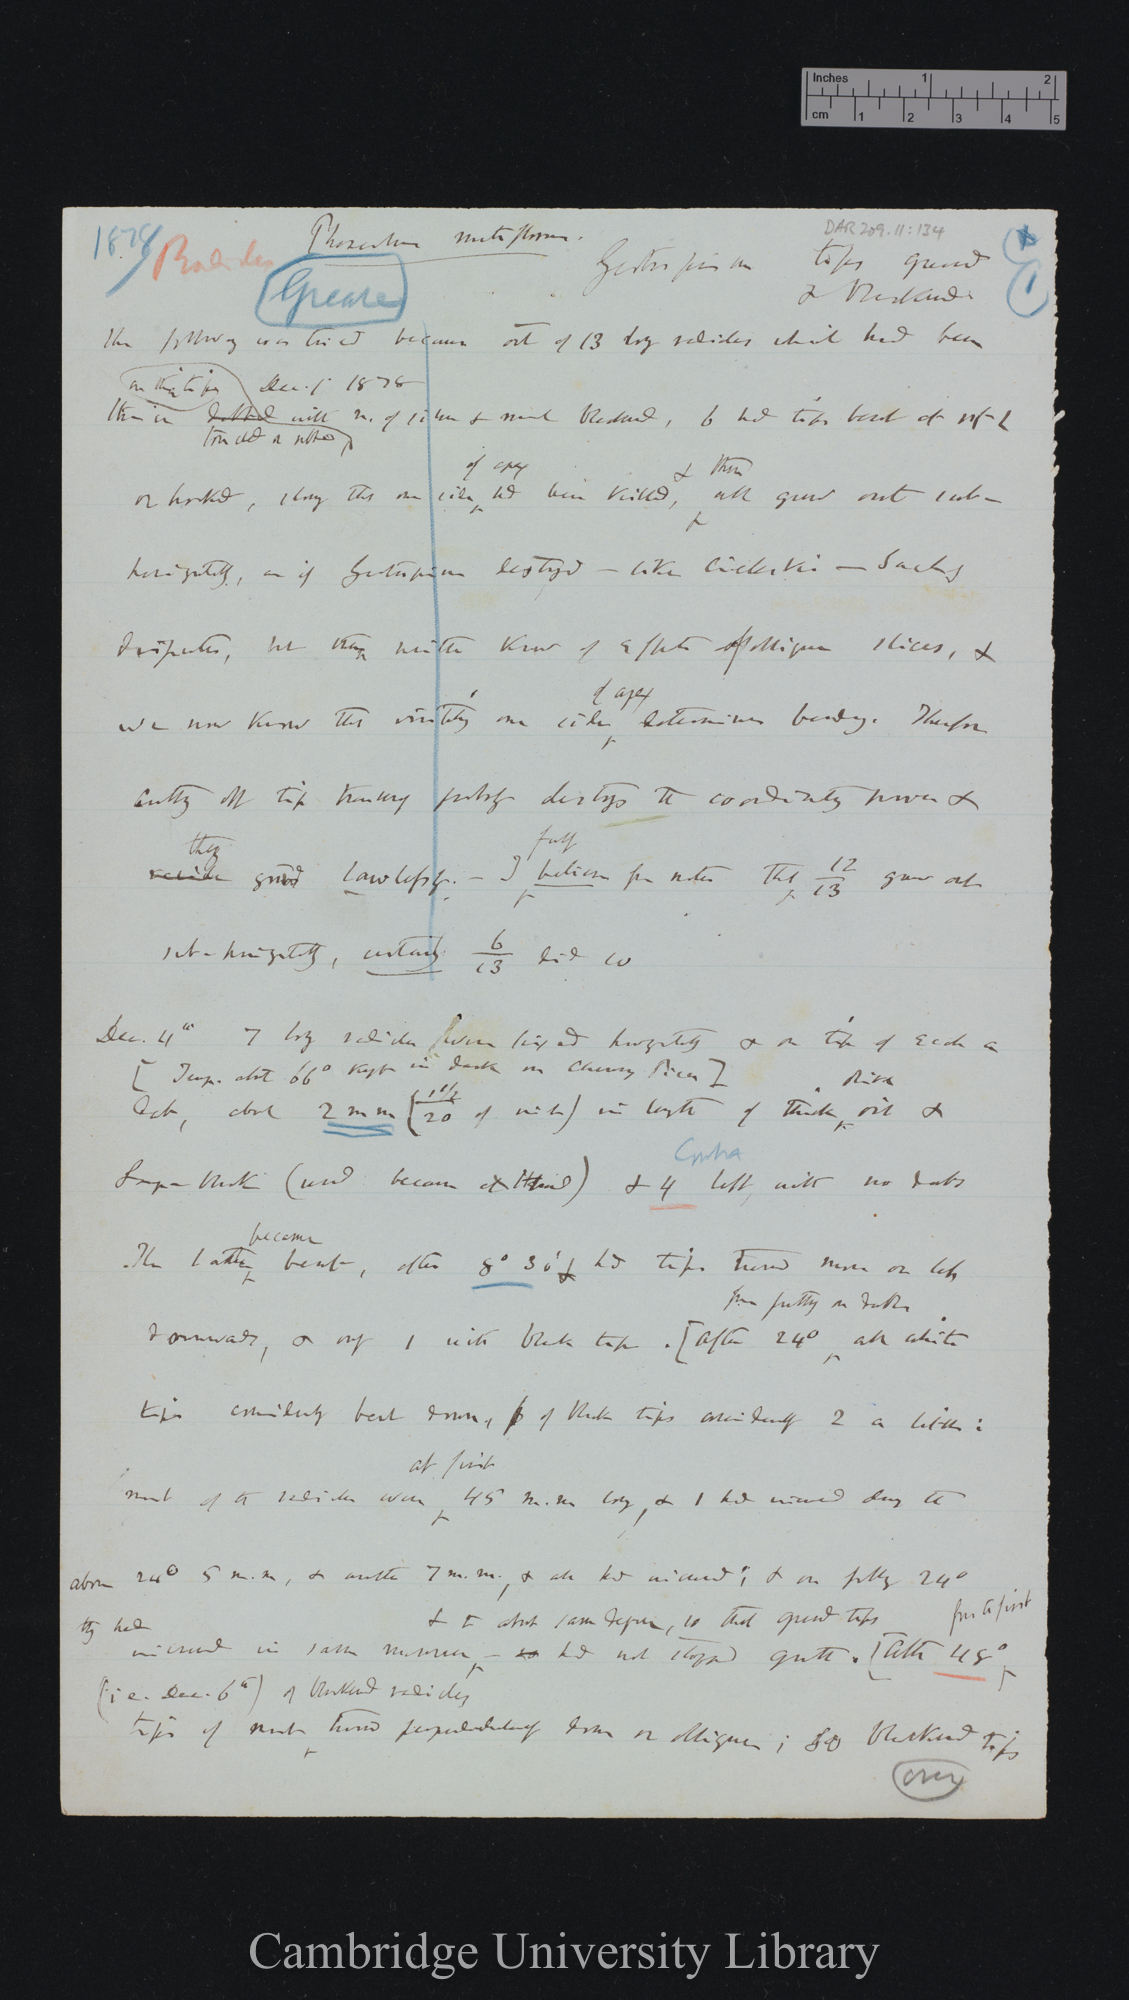 Inches 1 2
cm 1 2 3 4 5
DAR 209.11:134
1878 Radicles Phaseolus multiflorus.
Grease
Geotropism tips greased
& blackened
1
The following was tried because out of 13 bean radicles which had been
on their tips Dec. 1 1878
with n. of silver & much blackened, 6 had tips bent at rt L
touched or rubbed
of apex & then
or hooked, showing that one side had been killed, all grew out sub-
horizontally, as if Geotropism destroyed — like Ciesielski — Sachs
disputes, but they neither knew of effects of oblique slices, &
of apex
we now know that irritating one side determines bending. Therefore
cutting off tip transversely probably destroys the coordinating power &
they fully
radicle grow lawlessly. — I believe from notes that 12/13 grew out
sub-horizontally, certainly 6/13 did so
Dec. 4th 7 bean radicles were fixed horizontally & on tip of each a
[Temp. about 66° kept in dark on Chimney Piece]
olive
dab, about 2 mm (1½/20 of inch) in length of thick oil &
Control
Lamp-black (used because at hand) & 4 left with no dabs
became
The latter bent, after 8° 30' & had tips turned more or less
from putting on dabs
downwards, & only 1 with black tip. [After 24° all white
tips considerably bent down, of black tips considerably 2 a little:
at first
most of the radicles were 45 m.m long, & 1 had increased during the
above 24° 5 m.m, & another 7 m.m., & all had increased; & on following 24°
they had & to about same degree, so that greased tips from the first
increased in same manner, — so had not stopped growth. [After 48°
(i.e. Dec. 6th) of blackened radicles
tips of most turned perpendicularly down or oblique; so blackened tips
over
Cambridge University Library